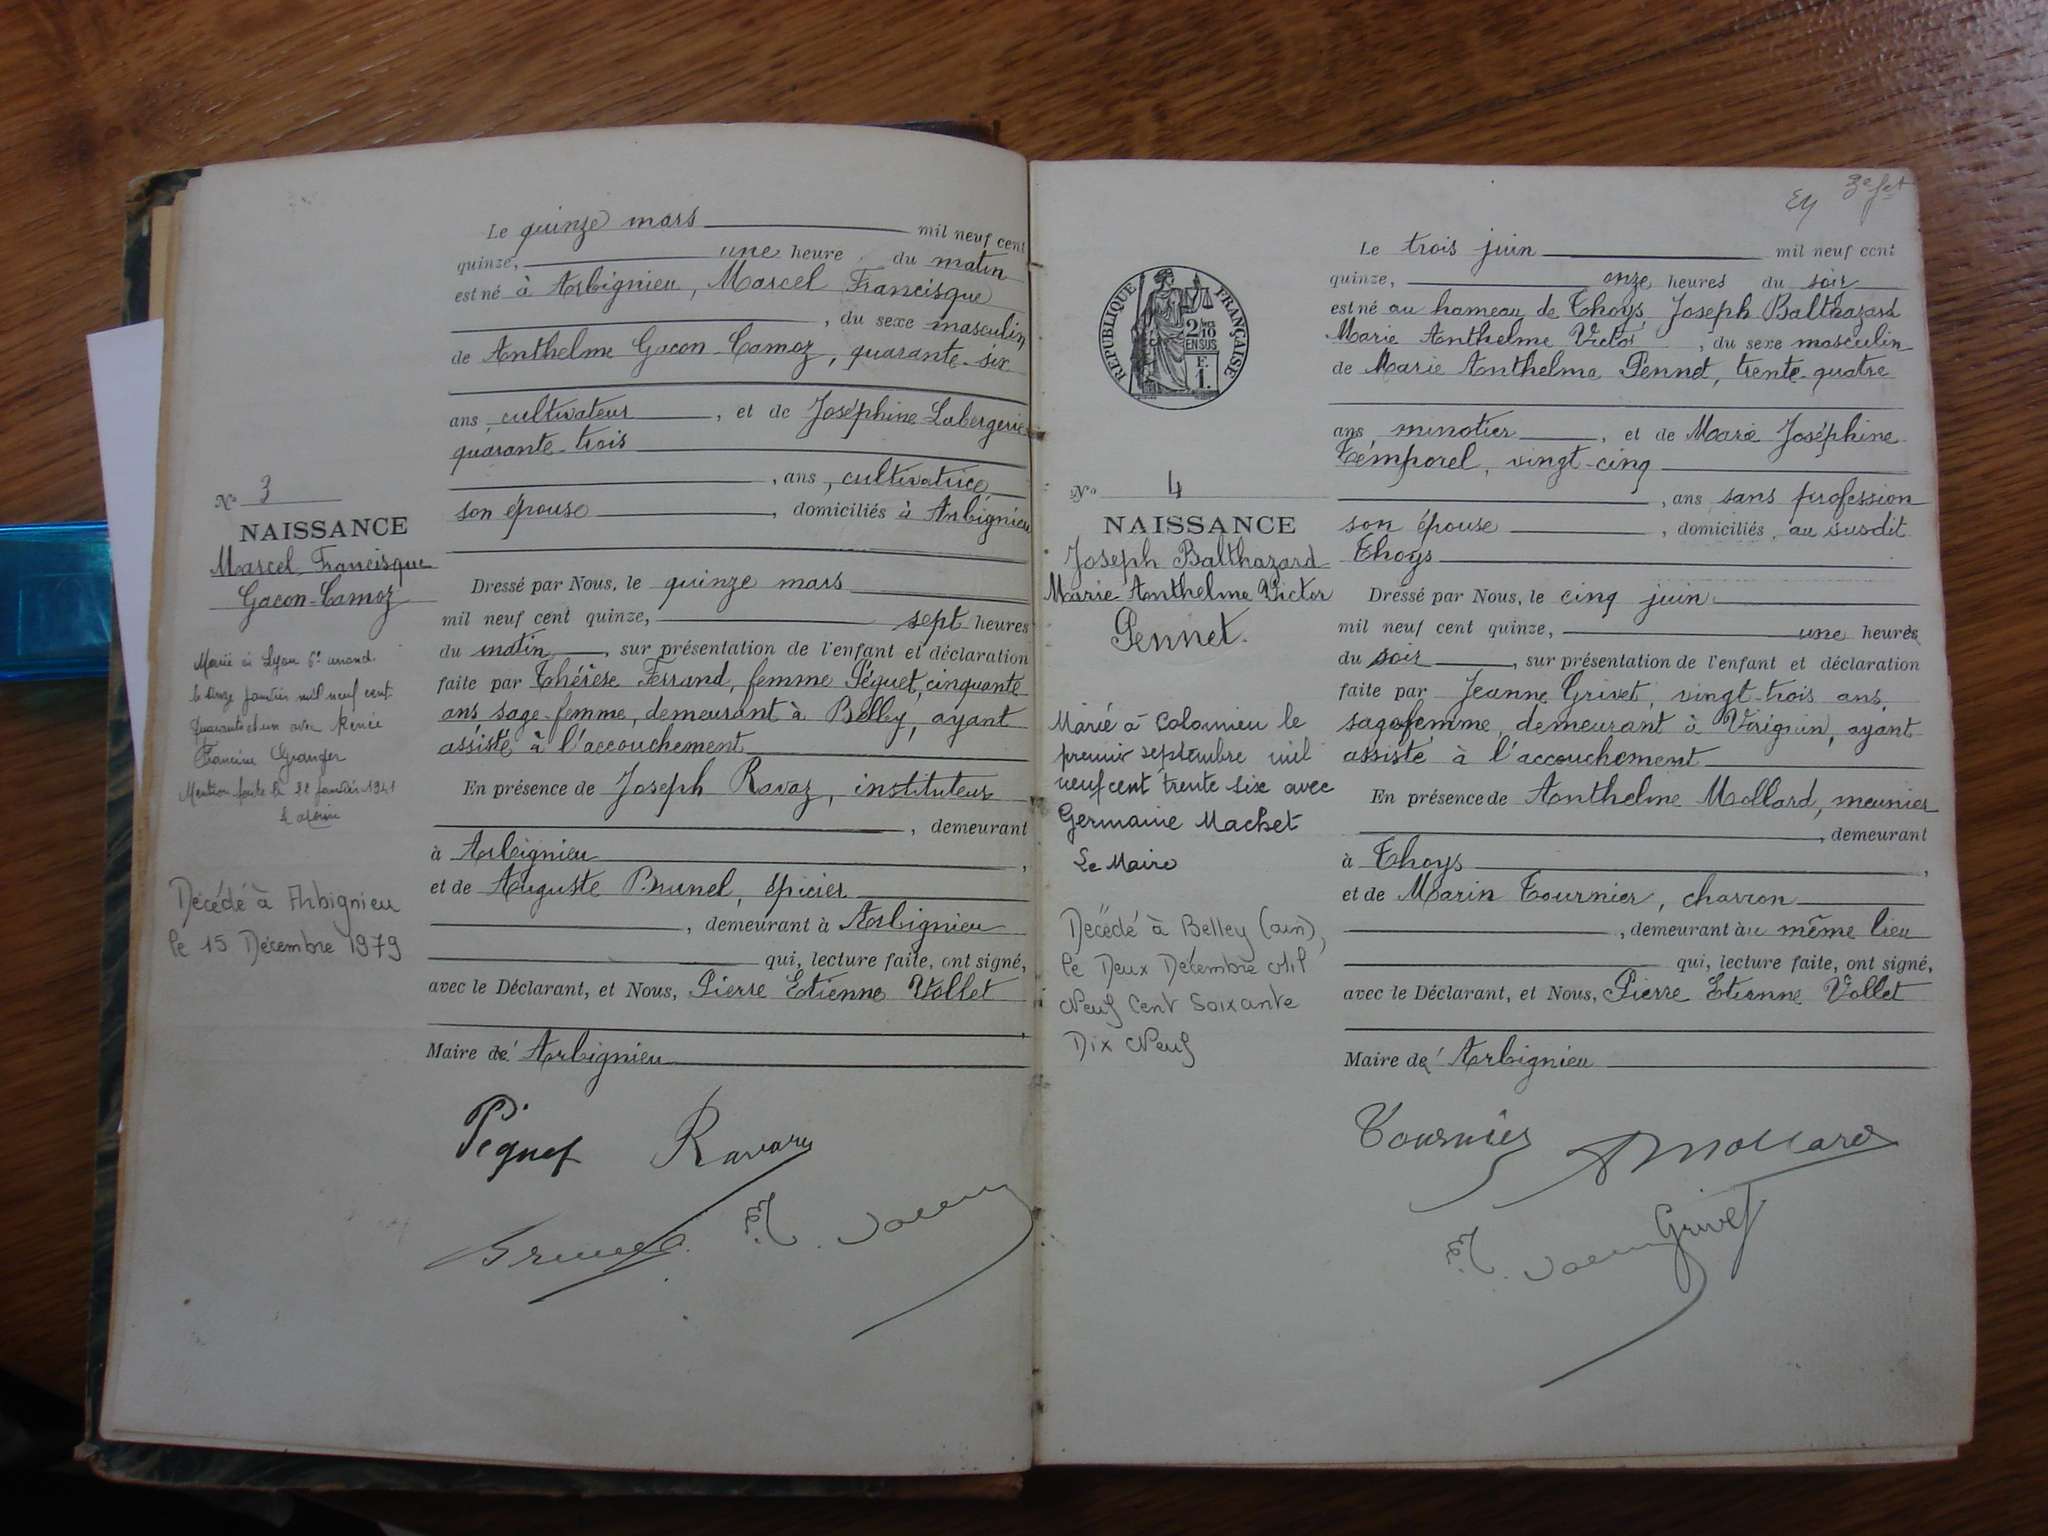 Le quinze mars mil neuf cent
quinze, une heure du matin
est né à Arbignieu, Marcel Francisque
, du sexe masculin
de Anthelme Gacon-Camoz, quarante-six
ans, cultivateur, et de Joséphine Labergerie
quarante-trois
, ans, cultivatrice
son épouse, domiciliés à Arbignieu
Dressé par Nous, le quinze mars
mil neuf cent quinze, sept heures
du matin, sur présentation de l'enfant et déclaration
faite par Thérèse Ferrand, femme Péquet, cinquante
ans sage-femme, demeurant à Belley, ayant
assisté à l'accouchement
En présence de Joseph Ravaz, instituteur
, demeurant
à Arbignieu,
et de Auguste Brunel, épicier
, demeurant à Arbignieu
qui, lecture faite, ont signé,
avec le Déclarant, et Nous, Pierre Etienne Vollet
Maire de Arbignieu
Péquet Ravaz
Brunel
N° 3
NAISSANCE
Marcel Francisque
Gacon-Camoz
Marié à Lyon 6e arrond.
le onze janvier mil neuf cent
quarante et un avec Renée
Francine Granger
Mention faite le 22 janvier 1941
Décédé à Arbignieu
le 15 Décembre 1979
3e fet
RÉPUBLIQUE FRANÇAISE
2/10
EN SUS
F.
1.
N° 4
NAISSANCE
Joseph Balthazard
Marie Anthelme Victor
Pennet
Marié à Colomieu le
premier septembre mil
neuf cent trente six avec
Germaine Machet
Le Maire
Décédé à Belley (ain),
le Deux Décembre Mil
Neuf Cent Soixante
Dix Neuf
Le trois juin mil neuf cent
quinze, onze heures du soir
est né au hameau de Thoys, Joseph Balthazard
Marie Anthelme Victor, du sexe masculin
de Marie Anthelme Pennet, trente-quatre
ans, minotier, et de Marie Joséphine
Temporel, vingt-cinq
, ans, sans profession
son épouse, domiciliés, au susdit
Thoys
Dressé par Nous, le cinq juin
mil neuf cent quinze, une heures
du soir, sur présentation de l'enfant et déclaration
faite par Jeanne Grivet, vingt-trois ans,
sage femme, demeurant à Virignin, ayant
assisté à l'accouchement
En présence de Anthelme Mollard, meunier
, demeurant
à Thoys,
et de Marin Tournier, charron
, demeurant au même lieu
qui, lecture faite, ont signé,
avec le Déclarant, et Nous, Pierre Etienne Vollet
Maire de Arbignieu
Tournier Mollard
Grivet